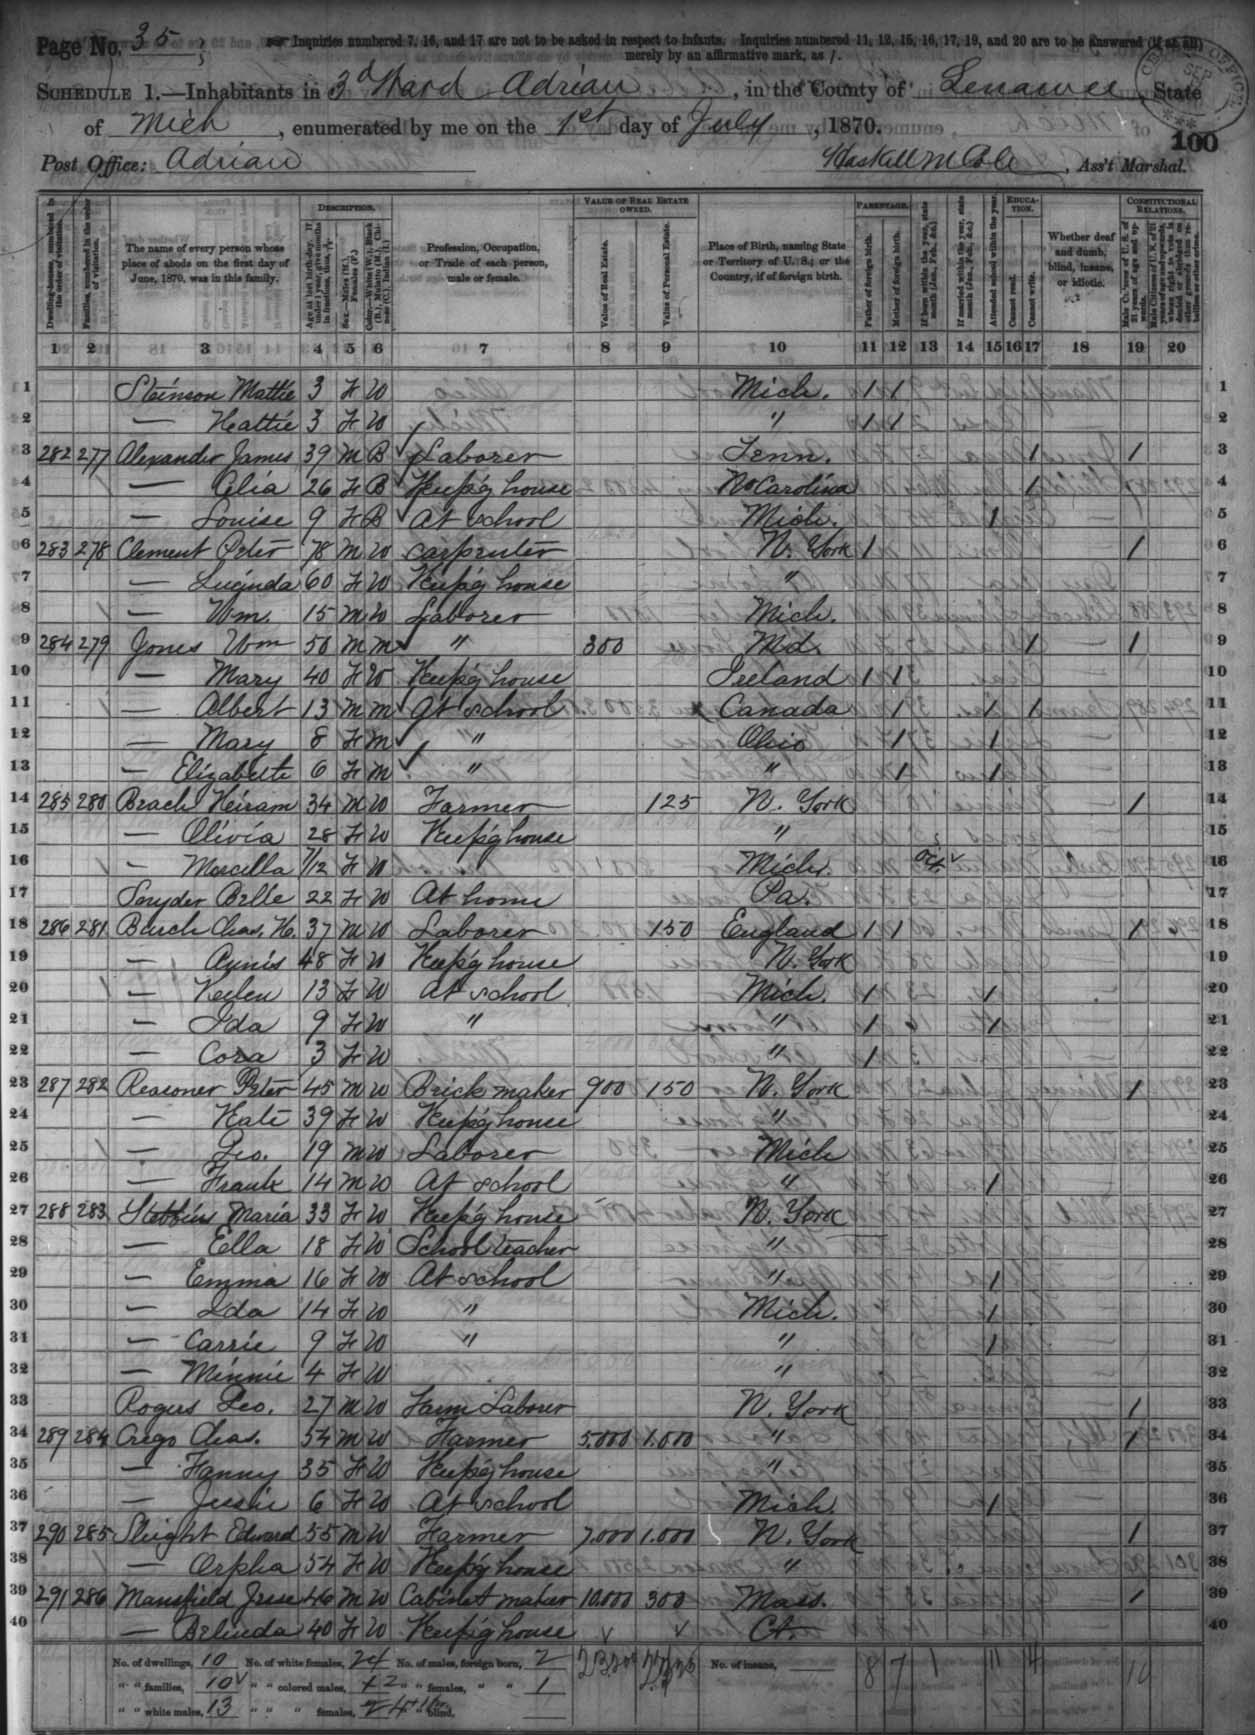 Page No. 35
Inquiries numbered 7, 16, and 17 are not to be asked in respect to infants. Inquiries numbered 11, 12, 15, 16, 17, 19, and 20 are to be answered (if at all)
merely by an affirmative mark, as /.
Schedule 1.—Inhabitants in 3d Ward Adrian, in the County of Lenawee State
of Mich, enumerated by me on the 1st day of July, 1870.
100
Post Office: Adrian Haskell M Cole, Ass't Marshal.
Description. Value of Real Estate Owned. Parentage. Education. Constitutional Relations.
Dwelling-houses, numbered in the order of visitation.
Families, numbered in the order of visitation.
The name of every person whose place of abode on the first day of June, 1870, was in this family.
Age at last birth-day. If under 1 year, give months in fractions, thus, 3/12
Sex.—Males (M.), Females (F.)
Color.—White (W.), Black (B.), Mulatto (M.), Chinese (C.), Indian (I.)
Profession, Occupation, or Trade of each person, male or female.
Value of Real Estate.
Value of Personal Estate.
Place of Birth, naming State or Territory of U. S.; or the Country, if of foreign birth.
Father of foreign birth.
Mother of foreign birth.
If born within the year, state month (Jan., Feb., &c.)
If married within the year, state month (Jan., Feb., &c.)
Attended school within the year.
Cannot read.
Cannot write.
Whether deaf and dumb, blind, insane, or idiotic.
Male Citizens of U. S. of 21 years of age and upwards.
1 2 3 4 5 6 7 8 9 10 11 12 13 14 15 16 17 18 19 20
1 Steinson Mattie 3 F W Mich. / / 1
2 — Hattie 3 F W " / / 2
3 282 277 Alexander James 39 M B Laborer Tenn. / / 3
4 — Celia 26 F B Keep'g house No Carolina / 4
5 — Louise 9 F B At school Mich. / 5
6 283 278 Clement Peter 78 M W Carpenter N. York / / 6
7 — Lucinda 60 F W Keep'g house " 7
8 — Wm. 15 M W Laborer Mich. 8
9 284 279 Jones Wm 50 M M " 300 Md. / / 9
10 — Mary 40 F W Keep'g house Ireland / / 10
11 — Albert 13 M M At school Canada / / / 11
12 — Mary 8 F M " Ohio / / 12
13 — Elizabeth 6 F M " " / / 13
14 285 280 Beach Heiram 34 M W Farmer 125 N. York / 14
15 — Olivia 28 F W Keep'g house " 15
16 — Morcella 7/12 F W Mich. Oct. 16
17 Snyder Belle 22 F W At home Pa. 17
18 286 281 Burch Chas. H. 37 M W Laborer 150 England / / / 18
19 — Aynis 48 F W Keep'g house N. York 19
20 — Hellen 13 F W At school Mich. / / 20
21 — Ida 9 F W " " / / 21
22 — Cora 3 F W " / 22
23 287 282 Reasoner Peter 45 M W Brick maker 900 150 N. York / 23
24 — Kate 39 F W Keep'g house " 24
25 — Geo. 19 M W Laborer Mich 25
26 — Frank 14 M W At school " / 26
27 288 283 Stebbins Maria 33 F W Keep'g house N. York 27
28 — Ella 18 F W School teacher " 28
29 — Emma 16 F W At school " / 29
30 — Ida 14 F W " Mich. / 30
31 — Carrie 9 F W " " / 31
32 — Minnie 4 F W " 32
33 Rogers Geo. 27 M W Farm Laborer N. York / 33
34 289 284 Crego Chas. 54 M W Farmer 5.000 1.000 " / 34
35 — Fanny 35 F W Keep'g house " 35
36 — Jessie 6 F W At school Mich. / 36
37 290 285 Sleight Edward 55 M W Farmer 7.000 1.000 N. York / 37
38 — Orpha 54 F W Keep'g house " 38
39 291 286 Mansfield Jesse 46 M W Cabinet maker 10.000 300 Mass. / 39
40 — Belinda 40 F W Keep'g house Ct. 40
No. of dwellings, 10 No. of white females, 24 No. of males, foreign born, 2 No. of insane, 8 7 1 11 4 10
" " families, 10 " " colored males, 2 " " females, " " 1
" " white males, 13 " " " females, 4 " " blind,